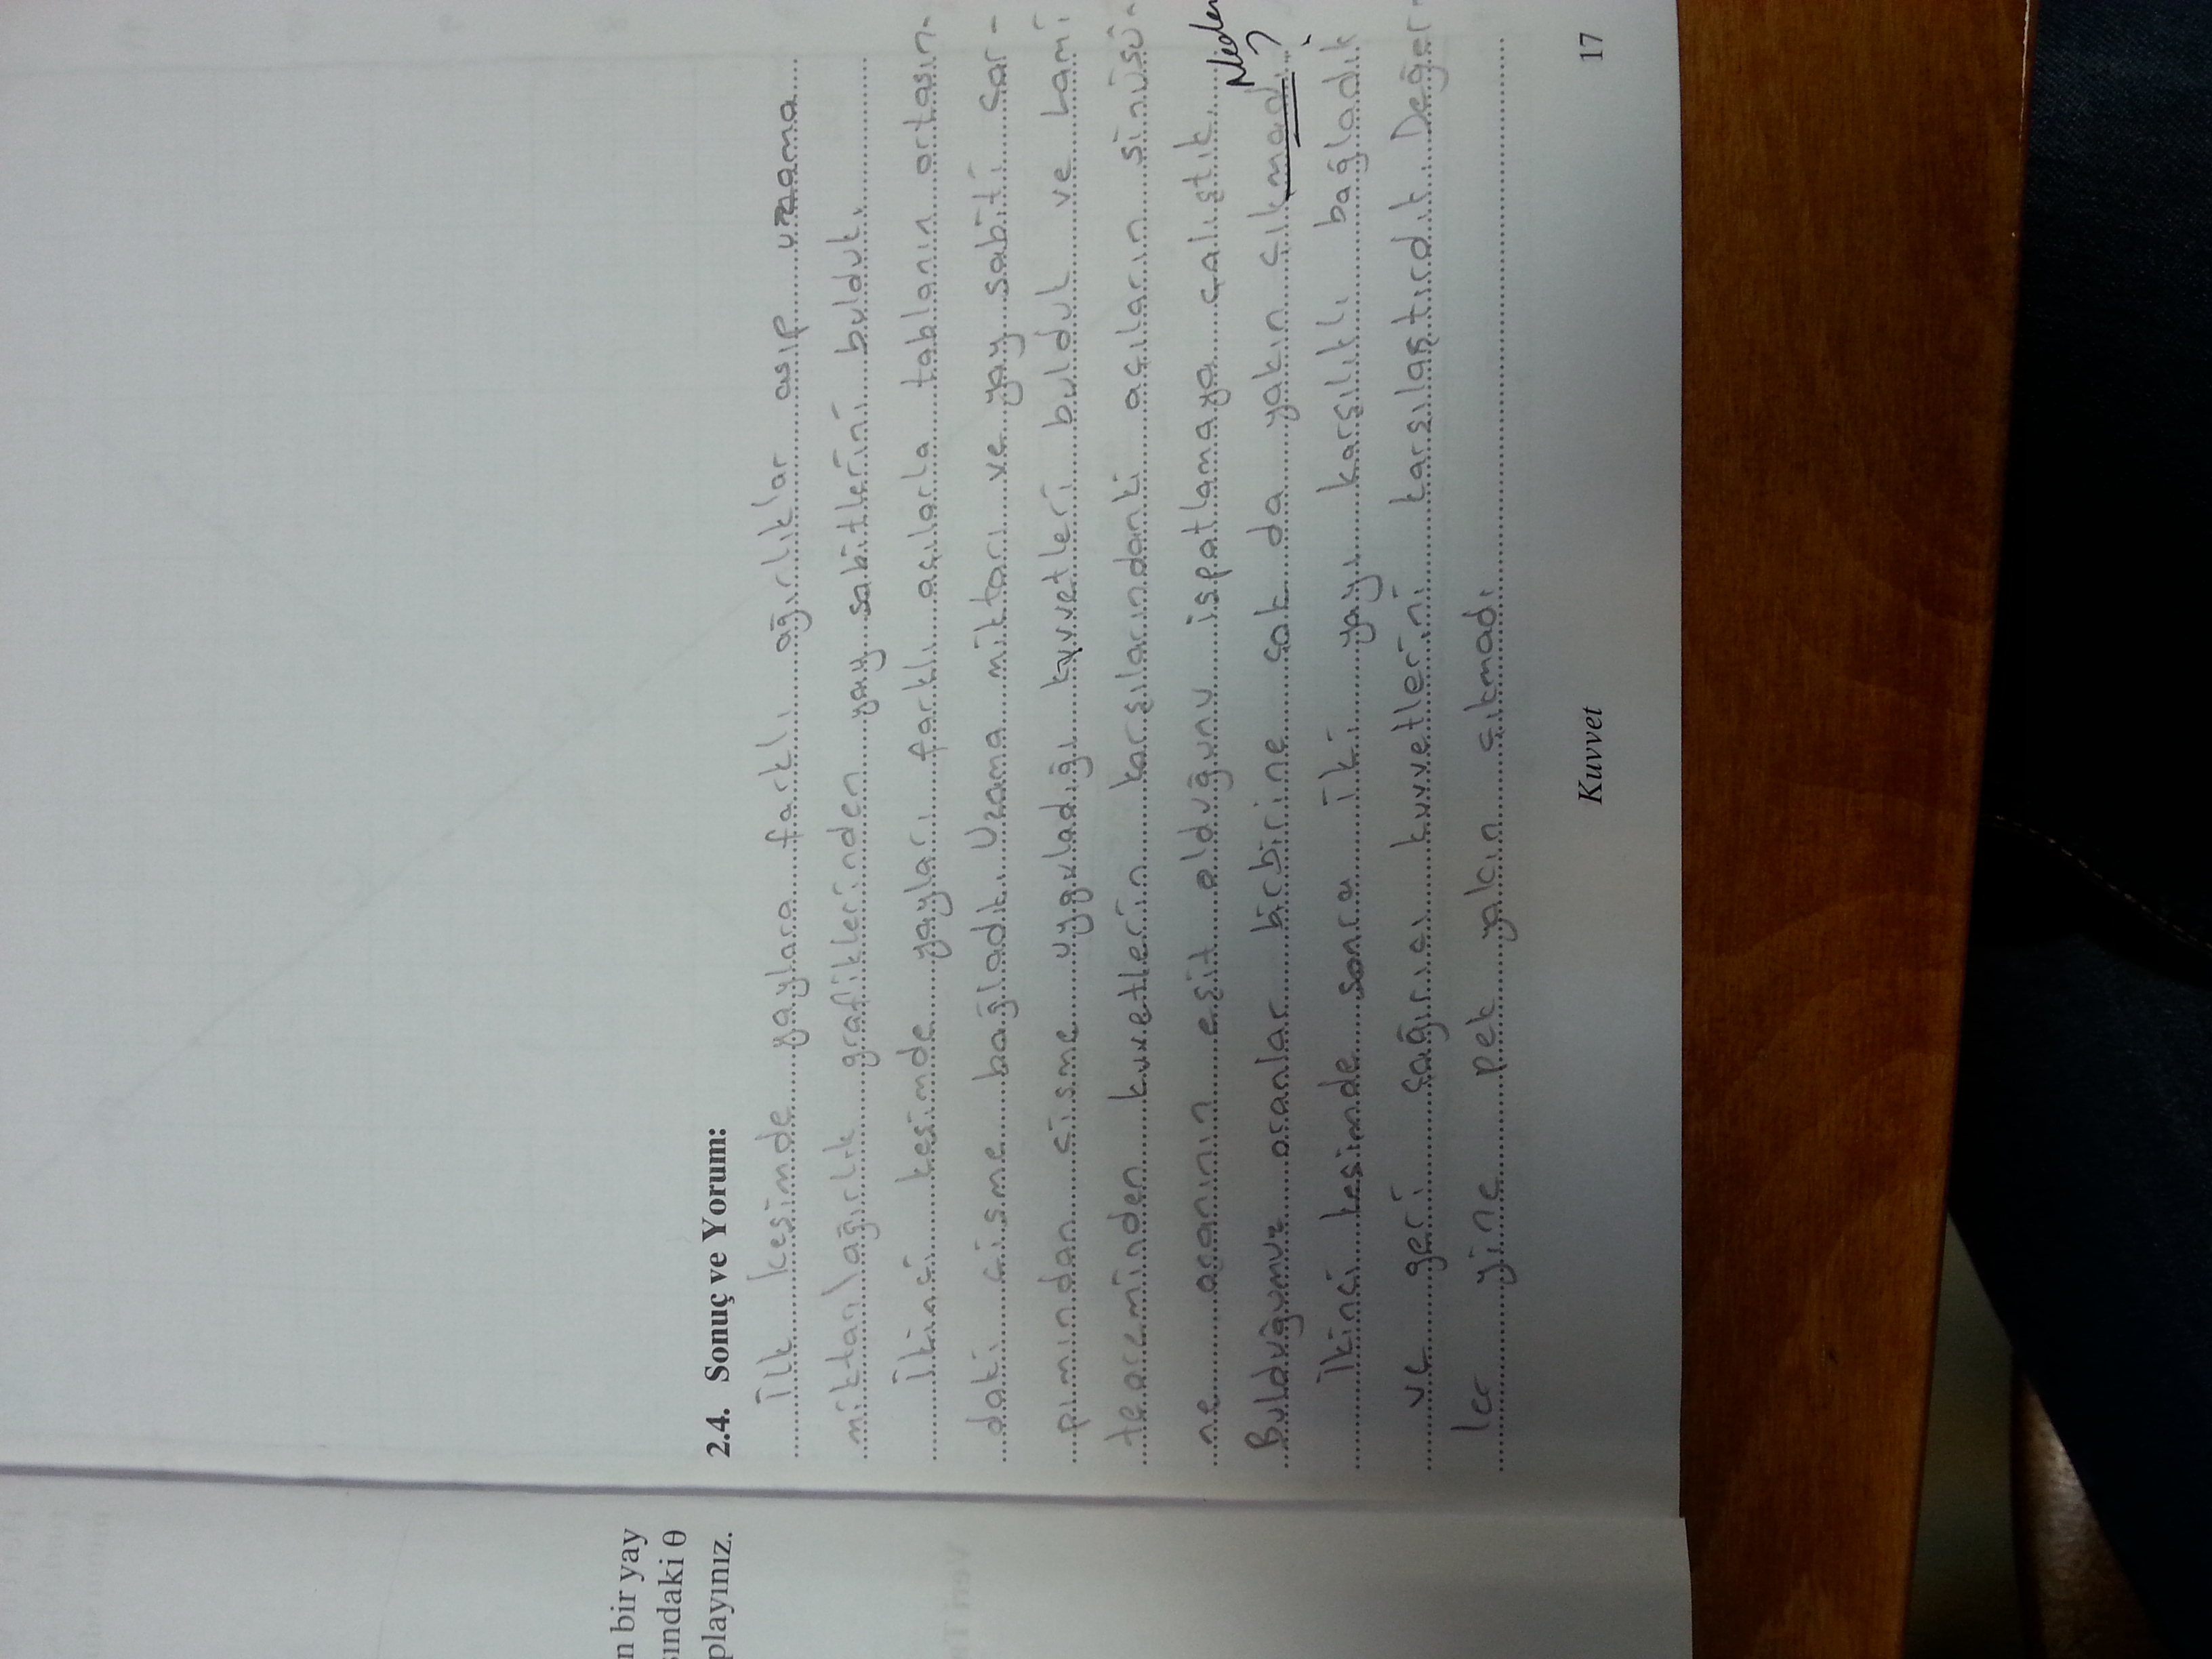 n bir yay
sındaki θ
playınız.
2.4. Sonuç ve Yorum:
İlk kesimde yaylara farklı ağırlıklar asıp uzama
miktarı\ağırlık grafiklerinden yay sabitlerini bulduk.
İkinci kesimde yayları farklı açılarla tablanın ortasın-
daki cisme bağladık. Uzama miktarı ve yay sabiti çar-
pımından cisme uyguladığı kuvvetleri bulduk ve Lami
teoreminden kuvetlerin karşılarındanki açıların sinüsü-
ne oranının eşit olduğunu ispatlamaya çalıştık.
Neden
Bulduğumuz oranlar birbirine çok da yakın çıkmadı. ?
İkinci kesimde sonra iki yayı karşılıklı bağladık
ve geri çağırıcı kuvvetlerini karşılaştırdık. Değer-
ler yine pek yakın çıkmadı
Kuvvet 17